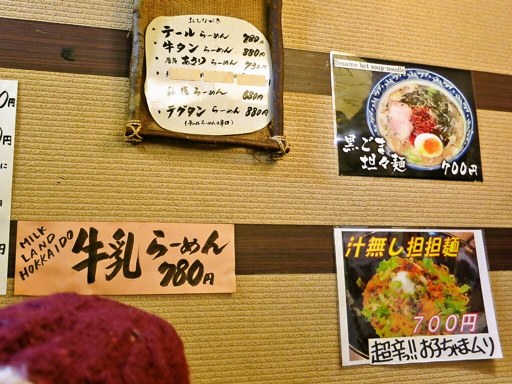 おしながき
・テールらーめん 780円
・牛タンらーめん 880円
あさりらーめん 730円
らーめん 680円
・テグタンらーめん 880円
Sesame hot soup-noodle
黒ごま
担々麺
700円
MILK
LAND
HOKKAIDO
牛乳らーめん
780円
汁無し担担麺
700円
超辛っ!!お子ちゃまムリ